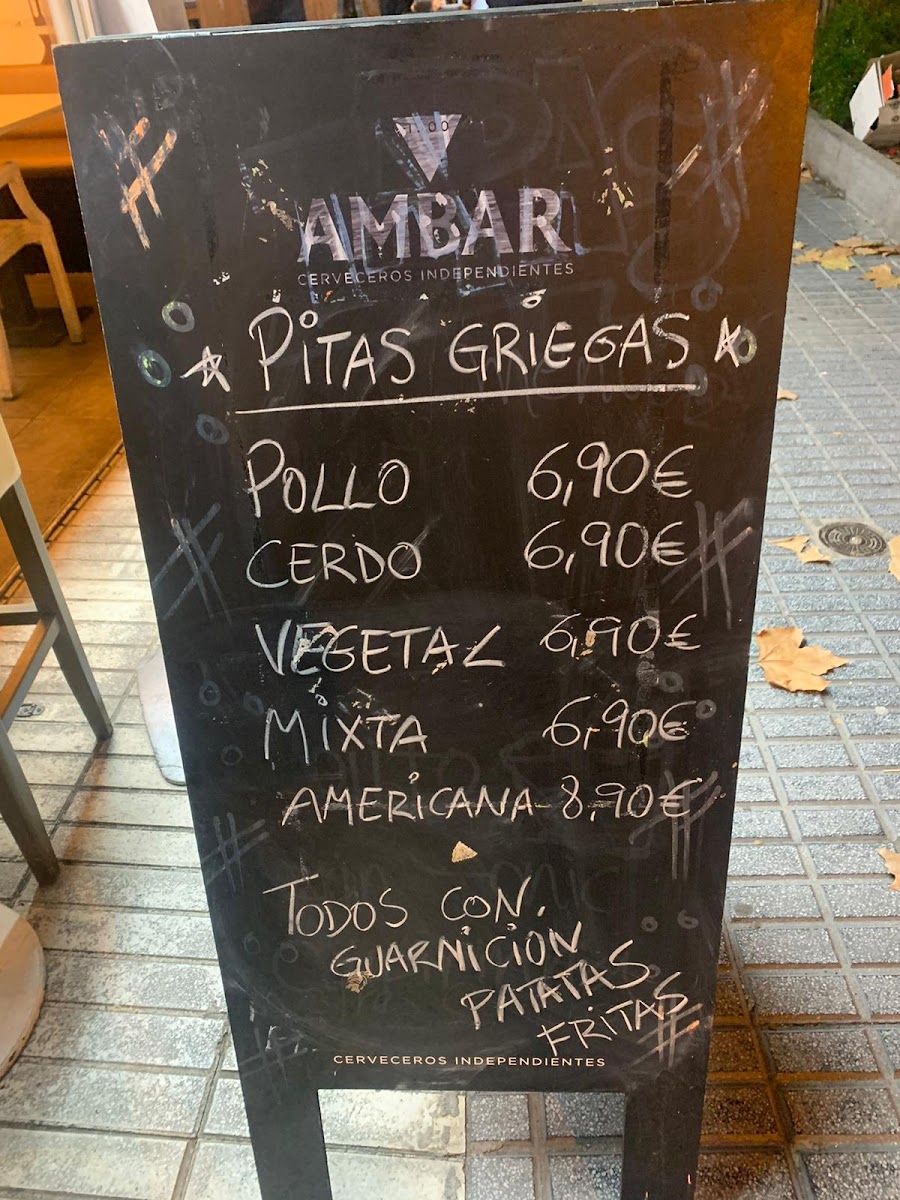 1900
AMBAR
CERVECEROS INDEPENDIENTES
PiTAS GRIEGAS
POLLO 6,90€
CERDO 6,90€
VEGETAL 6,90€
MiXTA 6,90€
AMERiCANA 8,90€
TODOS CON.
GUARNiCiON
PATATAS
FRiTAS
CERVECEROS INDEPENDIENTES